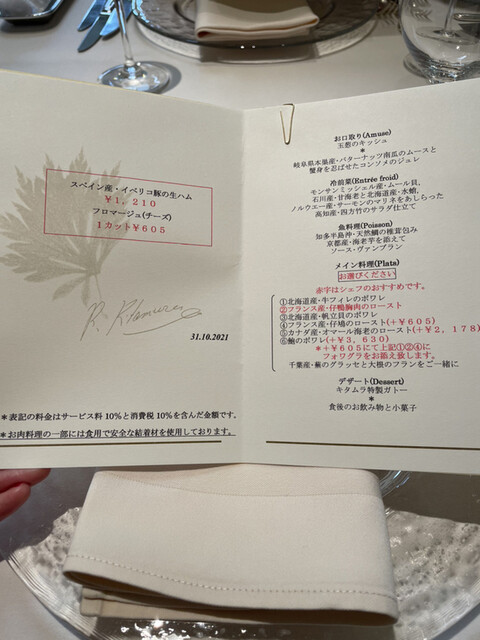 スペイン産・イベリコ豚の生ハム
￥１，２１０
フロマージュ(チーズ)
１カット￥６０５
31.10.2021
＊表記の料金はサービス料10％と消費税10％を含んだ金額です。
＊お肉料理の一部には食用で安全な結着材を使用しております。
お口取り(Amuse)
玉葱のキッシュ
＊
岐阜県本巣産・バターナッツ南瓜のムースと
蟹身を忍ばせたコンソメのジュレ
冷前菜(Entrée froid)
モンサンミッシェル産・ムール貝、
石川産・甘海老と北海道産・水蛸、
ノルウエー産・サーモンのマリネをあしらった
高知産・四方竹のサラダ仕立て
魚料理(Poisson)
知多半島沖・天然鯛の椎茸包み
京都産・海老芋を添えて
ソース・ヴァンブラン
メイン料理(Plats)
お選びください
赤字はシェフのおすすめです。
①北海道産・牛フィレのポワレ
②フランス産・仔鴨胸肉のロースト
③北海道産・帆立貝のポワレ
④フランス産・仔鳩のロースト(＋￥６０５)
⑤カナダ産・オマール海老のロースト(＋￥２，１７８)
⑥鮑のポワレ(＋￥３，６３０)
＊＋￥６０５にて上記①②④に
フォワグラをお添え致します。
千葉産・蕪のグラッセと大根のフランをご一緒に
デザート(Dessert)
キタムラ特製ガトー
＊
食後のお飲み物と小菓子